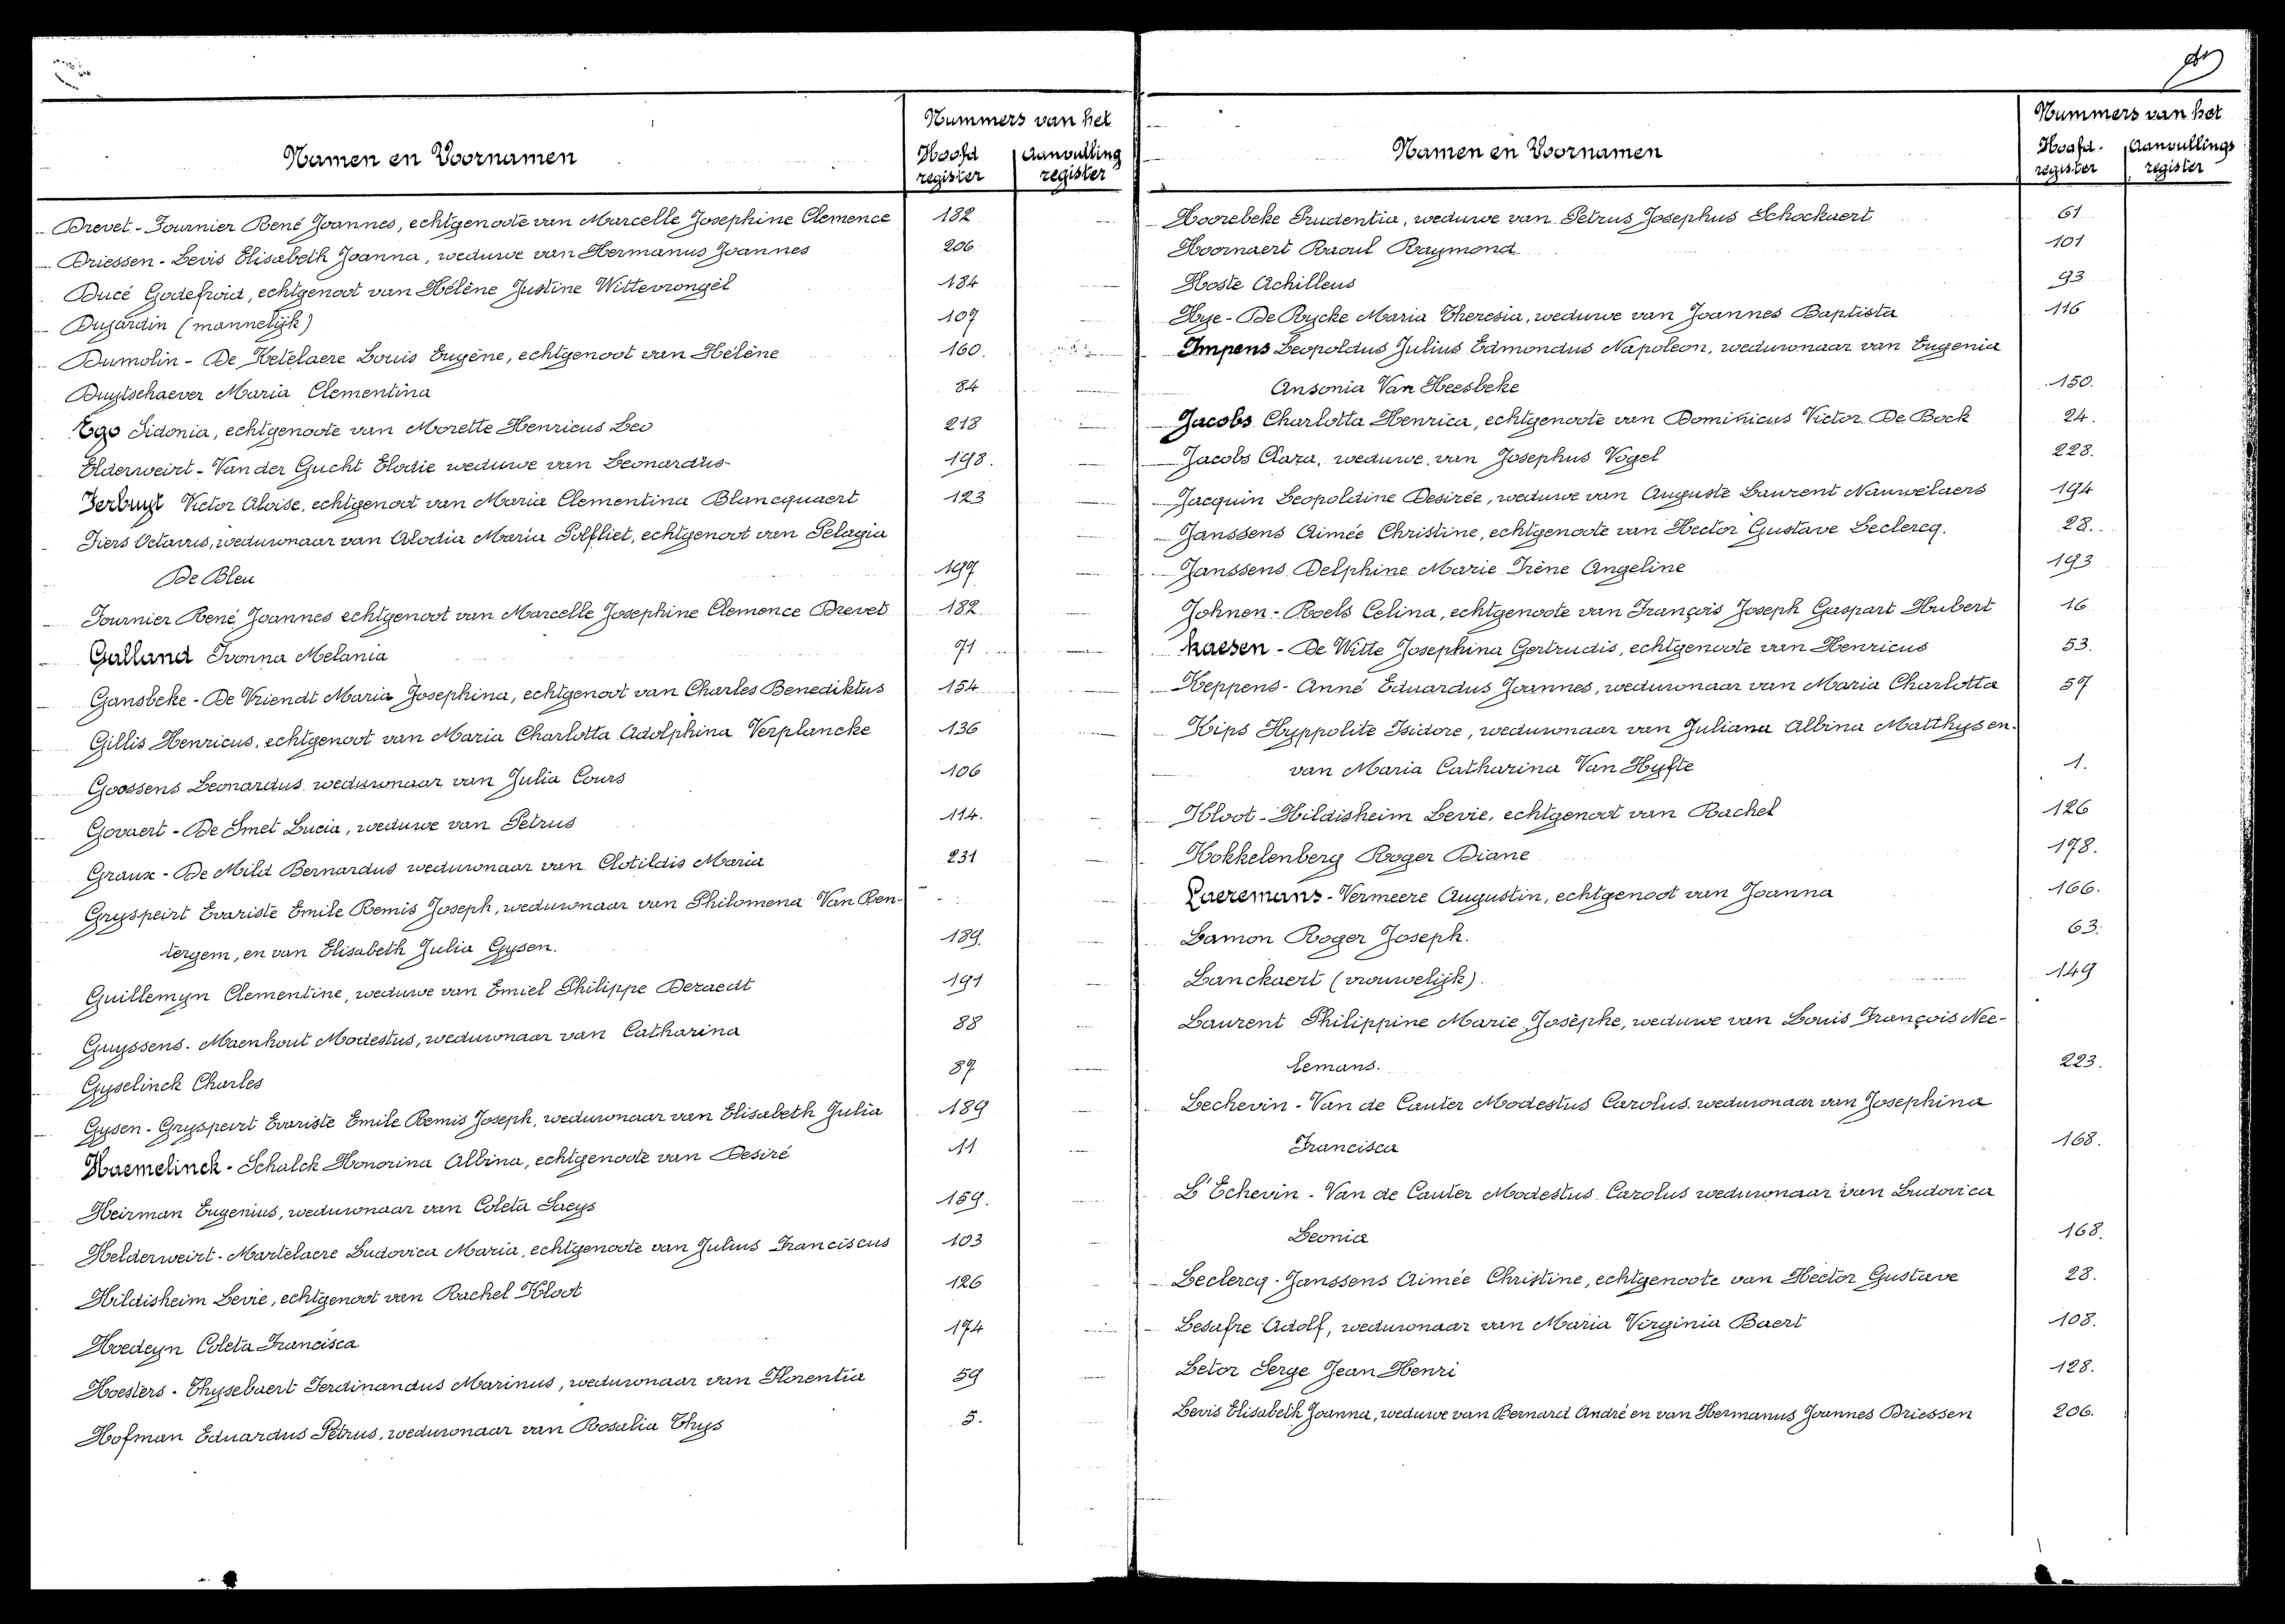 Nummers van het
Namen en Voornamen
Hoofd register
Aanvulling register
Drevet - Fournier René Joannes, echtgenoote van Marcelle Josephine Clemence 182
Driessen - Levis Elisabeth Joanna, weduwe van Hermanus Joannes 206
Ducé Godefroid, echtgenoot van Hélène Justine Wittevrongèl 184
Dujardin (mannelijk) 107
Dumolin - De Ketelaere Louis Eugène, echtgenoot van Hélène 160.
Duytschaever Maria Clementina 84
Ego Sidonia, echtgenoote van Morette Henricus Leo 218
Elderweirt - Van der Gucht Elodie weduwe van Leonardus 198.
Ferbuyt Victor Aloise, echtgenoot van Maria Clementina Blancquaert 123
Fiers Octavus, weduwnaar van Alodia Maria Polfliet, echtgenoot van Pelagia
De Bleu 197
Fournier René Joannes echtgenoot van Marcelle Josephine Clemence Drevet 182
Galland Ivonna Melania 71
Gansbeke - De Vriendt Maria Josephina, echtgenoot van Charles Benediktus 154
Gillis Henricus, echtgenoot van Maria Charlotta Adolphina Verplancke 136
Goossens Leonardus weduwnaar van Julia Cours 106
Govaert - De Smet Lucia, weduwe van Petrus 114.
Graux - De Mild Bernardus weduwnaar van Clotildis Maria 231
Gryspeirt Evariste Emile Remis Joseph, weduwnaar van Philomena Van Ren-
tergem, en van Elisabeth Julia Gysen. 189.
Guillemyn Clementine, weduwe van Emiel Philippe Deraedt 191
Guyssens - Maenhout Modestus, weduwnaar van Catharina 88
Gyselinck Charles 87
Gysen - Gryspeirt Evariste Emile Remis Joseph, weduwnaar van Elisabeth Julia 189
Haemelinck - Schalck Honorina Albina, echtgenoote van Desiré 11
Heirman Eugenius, weduwnaar van Coleta Saeys 159.
Helderweirt - Martelaere Ludovica Maria, echtgenoote van Julius Franciscus 103
Hildisheim Levie, echtgenoot van Rachel Kloot 126
Hoedeyn Coleta Francisca 174
Hoesters - Thysebaert Ferdinandus Marinus, weduwnaar van Florentia 59
Hofman Eduardus Petrus, weduwnaar van Rosalia Thys 5.
Nummers van het
Namen en Voornamen
Hoofd. register
Aanvullings register
Hoorebeke Prudentia, weduwe van Petrus Josephus Schockaert 61
Hoornaert Raoul Raymond 101
Hoste Achilleus 93
Hye - De Rycke Maria Theresia, weduwe van Joannes Baptista 116
Impens Leopoldus Julius Edmondus Napoleon, weduwnaar van Eugenia
Ansonia Van Heesbeke 150.
Jacobs Charlotta Henrica, echtgenoote van Dominicus Victor De Bock 24.
Jacobs Clara, weduwe van Josephus Vogel 228.
Jacquin Leopoldine Desirée, weduwe van Auguste Laurent Nauwelaers 194
Janssens Aimée Christine, echtgenoote van Hector Gustave Leclercq. 28.
Janssens Delphine Marie Irène Angeline 193
Johnen - Roels Celina, echtgenoote van François Joseph Gaspart Hubert 16
Kaesen - De Witte Josephina Gertrudis, echtgenoote van Henricus 53.
Keppens - Anné Eduardus Joannes, weduwnaar van Maria Charlotta 57
Kips Hyppolite Isidore, weduwnaar van Juliana Albina Matthysen.
van Maria Catharina Van Hyfte 1.
Kloot - Hildisheim Levie, echtgenoot van Rachel 126
Kokkelenberg Roger Diane 178.
Laeremans - Vermeere Augustin, echtgenoot van Joanna 166.
Lamon Roger Joseph. 63.
Lanckaert (vrouwelijk). 149
Laurent Philippine Marie Josèphe, weduwe van Louis François Nee-
lemans. 223.
Lechevin - Van de Cauter Modestus Carolus weduwnaar van Josephina
Francisca 168.
L'Echevin - Van de Cauter Modestus Carolus weduwnaar van Ludovica
Leonia 168.
Leclercq - Janssens Aimée Christine, echtgenoote van Hector Gustave 28.
Lesafre Adolf, weduwnaar van Maria Virginia Baert 108.
Letor Serge Jean Henri 128.
Levis Elisabeth Joanna, weduwe van Bernard André en van Hermanus Joannes Driessen 206.